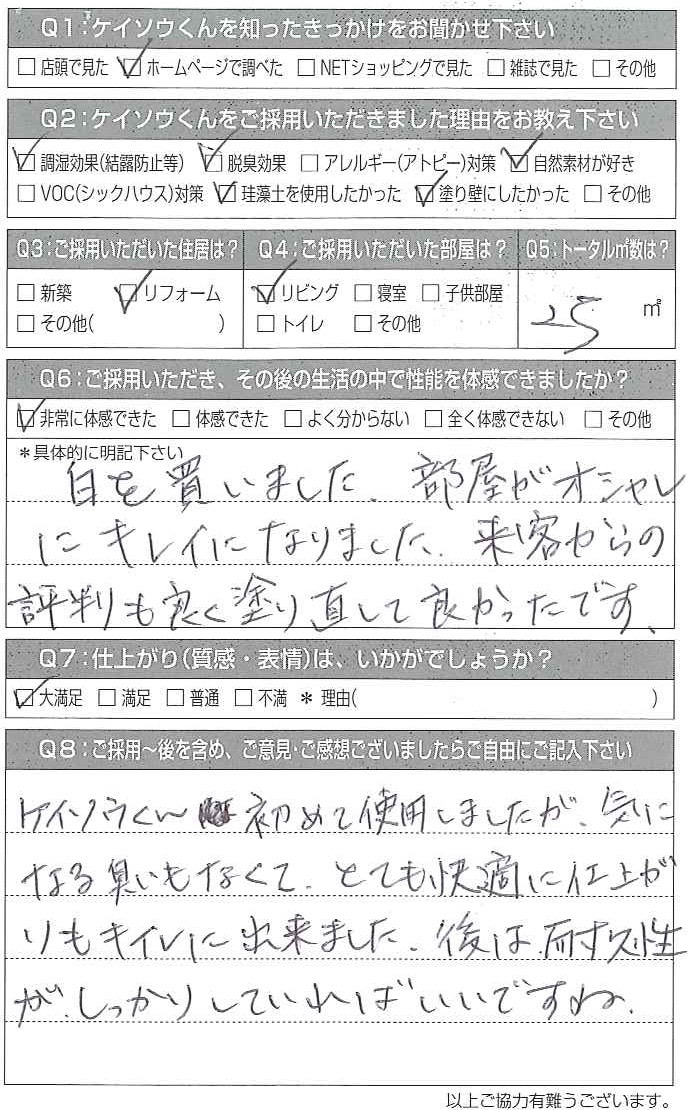 Q1：ケイソウくんを知ったきっかけをお聞かせ下さい
□店頭で見た ☑ホームページで調べた □NETショッピングで見た □雑誌で見た □その他
Q2：ケイソウくんをご採用いただきました理由をお教え下さい
☑調湿効果(結露防止等) ☑脱臭効果 □アレルギー(アトピー)対策 ☑自然素材が好き
□VOC(シックハウス)対策 ☑珪藻土を使用したかった ☑塗り壁にしたかった □その他
Q3：ご採用いただいた住居は？ Q4：ご採用いただいた部屋は？ Q5：トータル㎡数は？
□新築 ☑リフォーム ☑リビング □寝室 □子供部屋 25 ㎡
□その他( ) □トイレ □その他
Q6：ご採用いただき、その後の生活の中で性能を体感できましたか？
☑非常に体感できた □体感できた □よく分からない □全く体感できない □その他
＊具体的に明記下さい
白を買いました、部屋がオシャレ
にキレイになりました、来客からの
評判も良く塗り直して良かったです、
Q7：仕上がり(質感・表情)は、いかがでしょうか？
☑大満足 □満足 □普通 □不満 ＊理由( )
Q8：ご採用～後を含め、ご意見・ご感想ございましたらご自由にご記入下さい
ケイソウくん 初めて使用しましたが、気に
なる臭いもなくて、とても快適に仕上が
りもキイレに出来ました、後は、耐久性
が、しっかりしていればいいですね、
以上ご協力有難うございます。